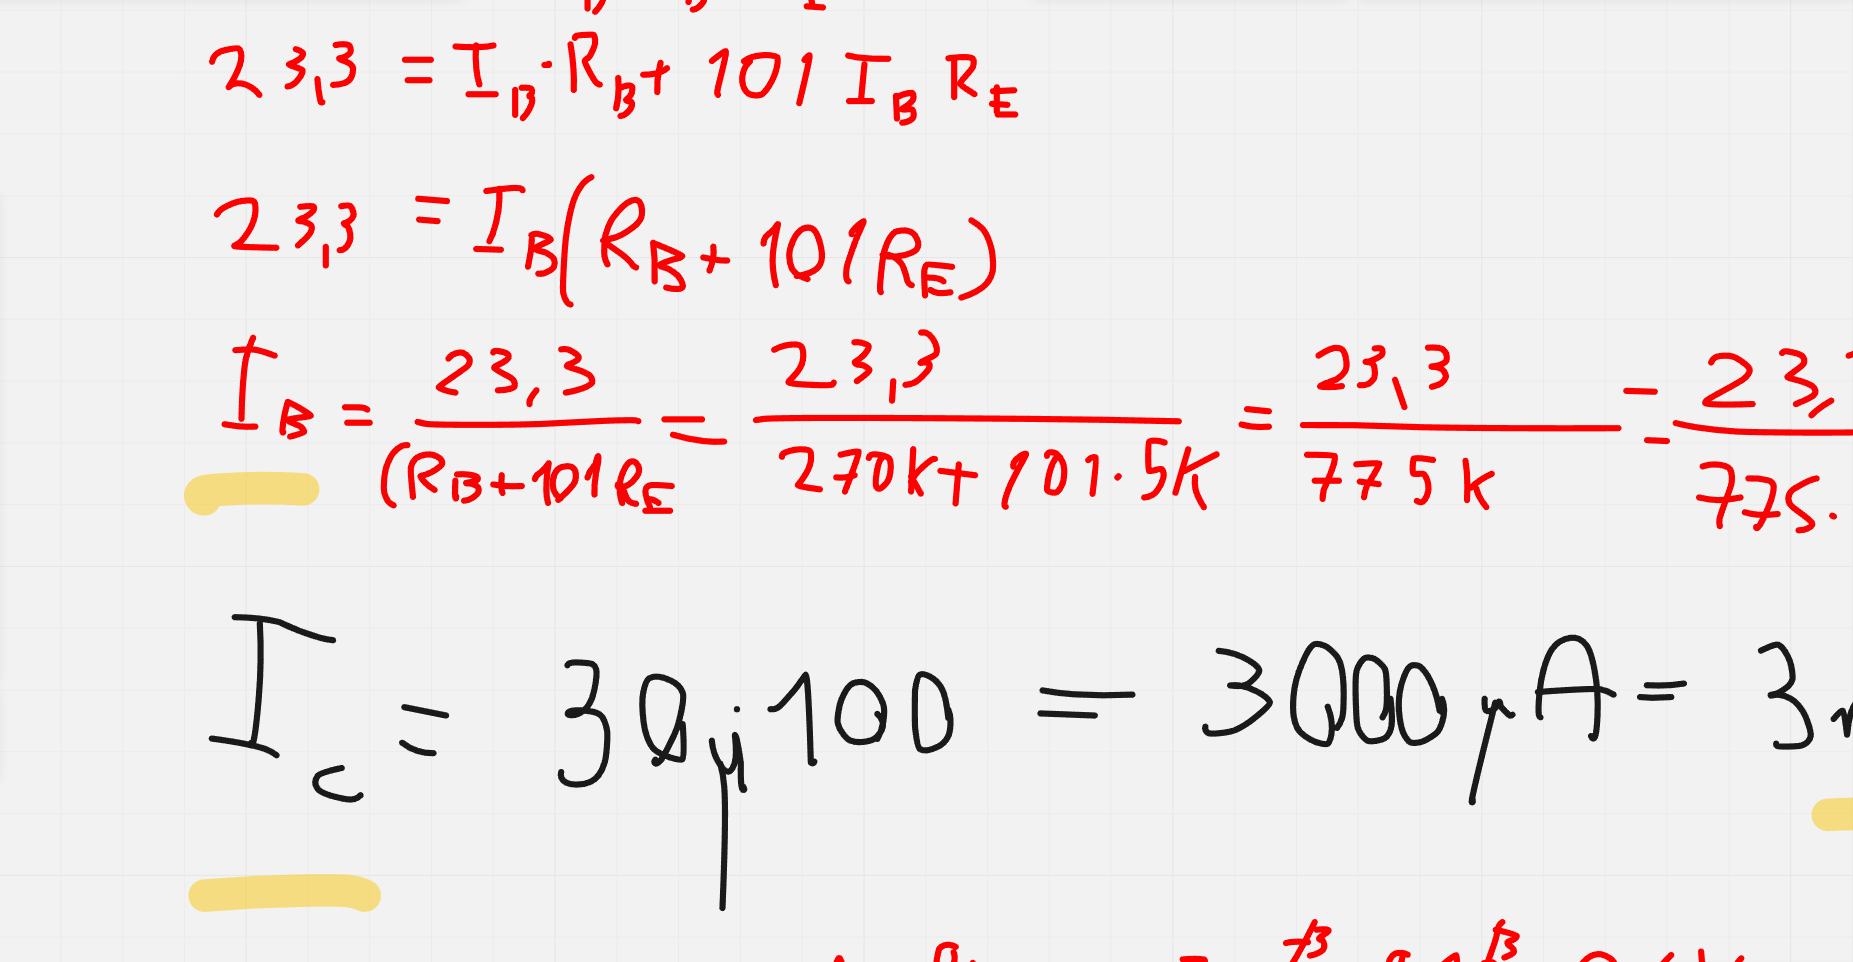 23,3 = I_B · R_B + 101 I_B R_E
23,3 = I_B (R_B + 101 R_E)
I_B = 23,3 / (R_B + 101 R_E = 23,3 / 270K + 101 · 5K = 23,3 / 775K = 23, / 775.
I_C = 30µ · 100 = 3000 µA = 3